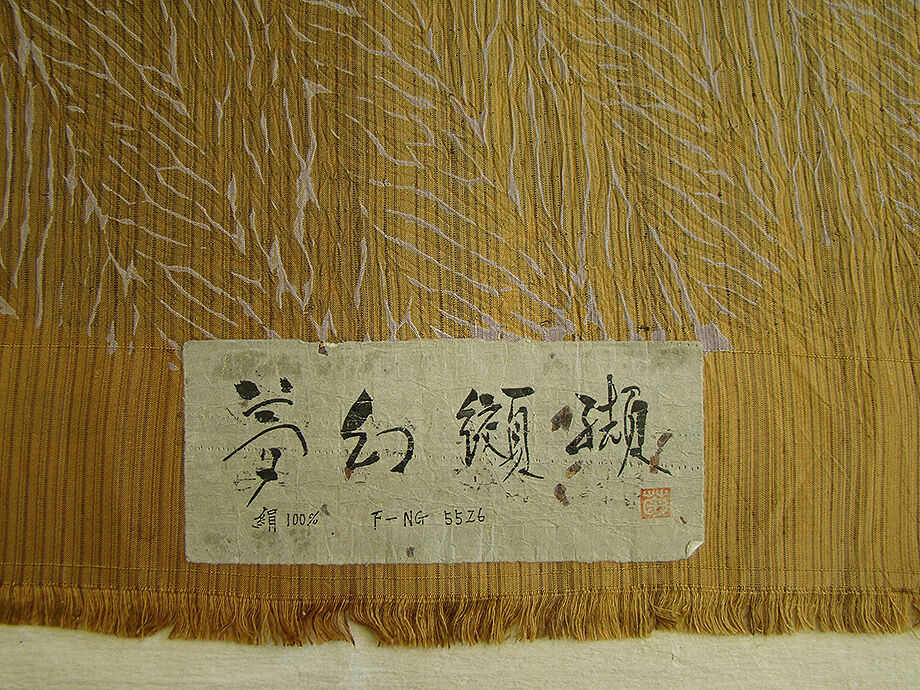 夢幻纐纈
絹 100% F-NG 5526